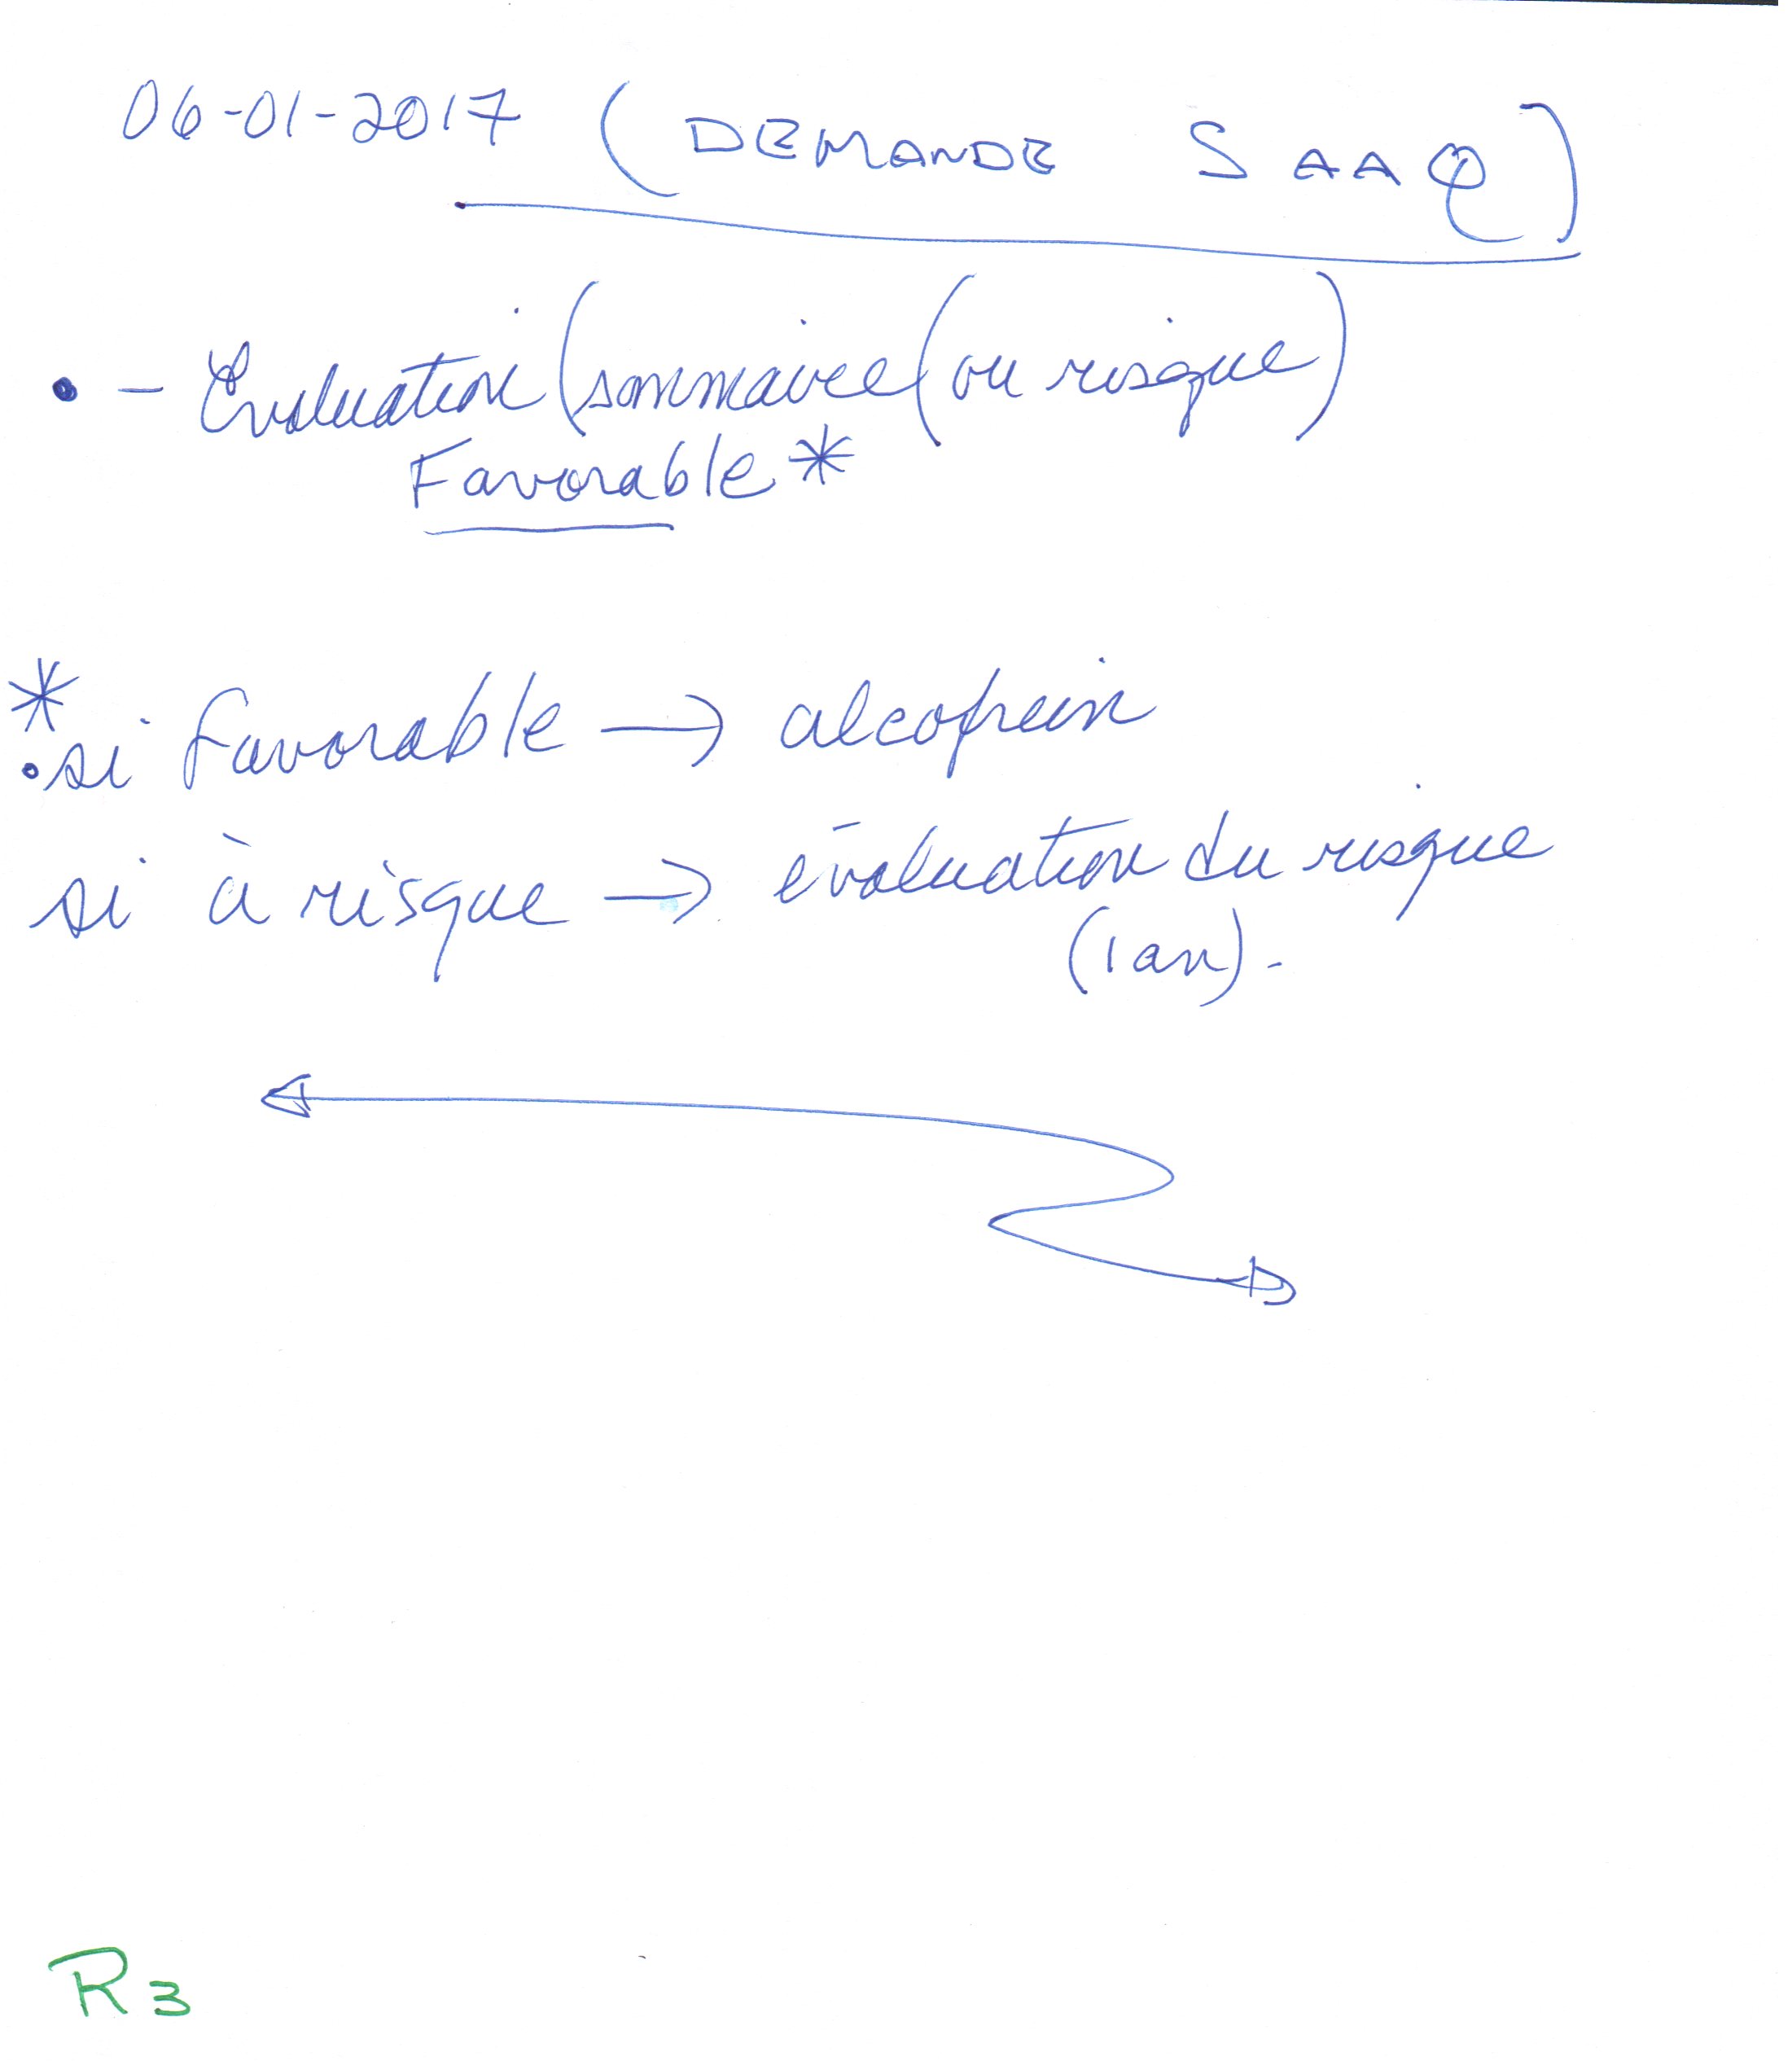 06-01-2017 (DEMANDE SAAQ)
• - Évaluation (sommaire (ou risque)
Favorable *
*
• si favorable → alcofrein
si à risque → évaluation du risque
(1 an).
R3